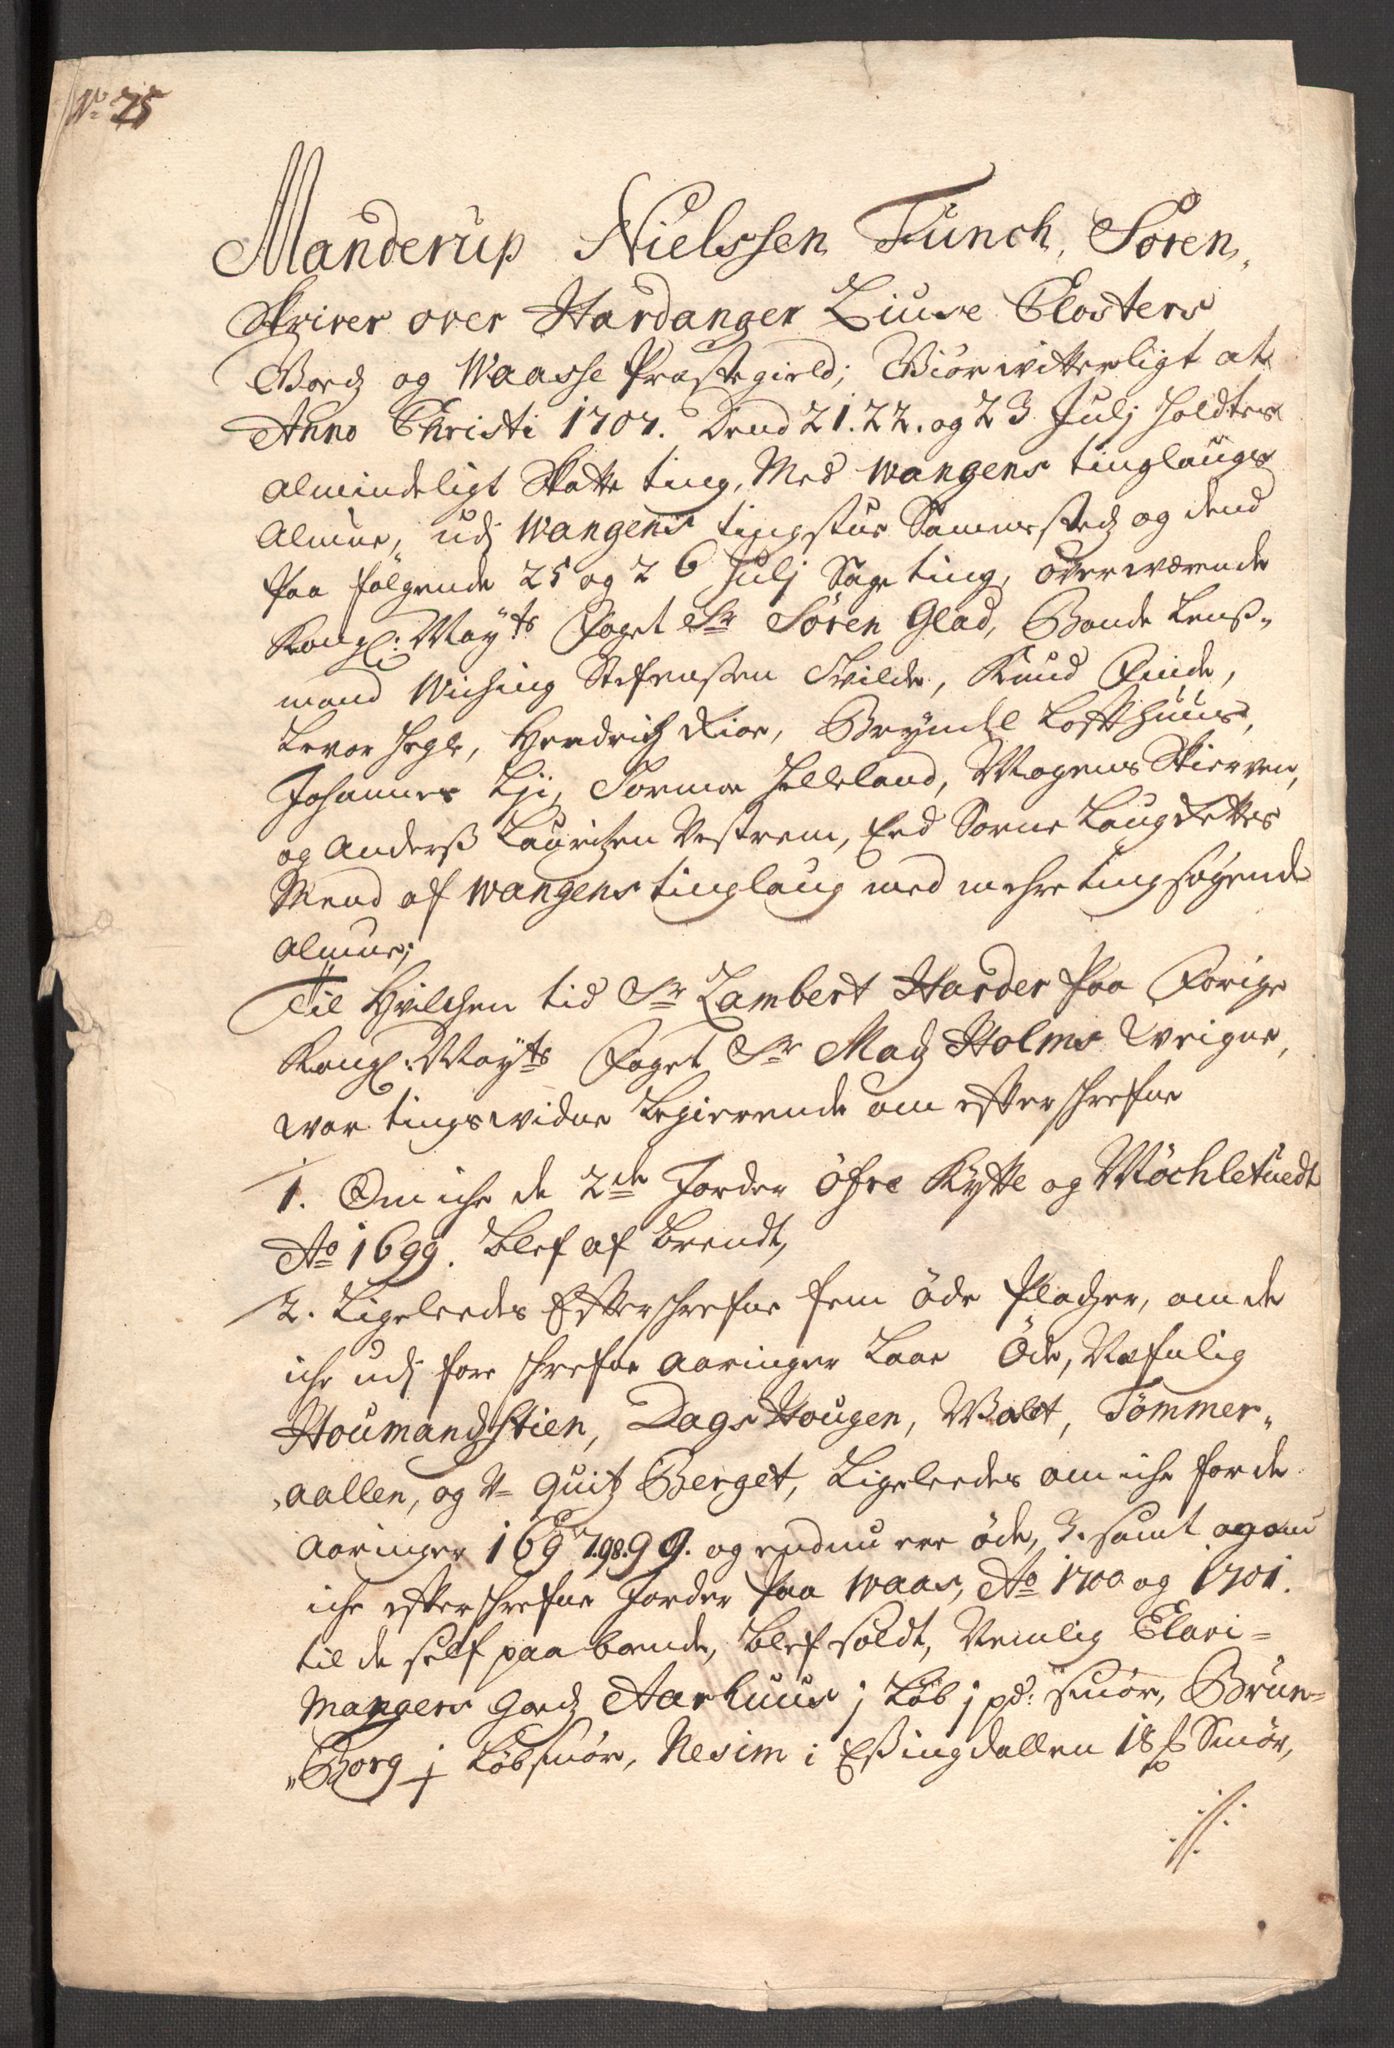 No 25
Manderup Nielssen Funch, Soren„
Skriver over Hardanger Liuse Closters
Goedz og Waasse Præstegield; Giør witterligt at
Anno Christi 1707. Dend 21. 22. og 23 Julj holdtes
almindeligt Skatte ting, Med Wangens tinglaugs
Almue, udj Wangens tingstue Sammesteds og dend
Paa følgende 25 og 26 Julj Sage ting, overværende
Kongl: Mayts Foget Sr Søren Glad, Bonde Lenß„
mand Wiching Stefenßen Tvilde, Knud Finde,
Levor Hegle, Hendrich Rioe, Bryndel Loftthuus,
Johannes Lji, Tormoe Helleland, Mogens Skierven,
og Anderß Lauritzen Vestrem, Eed Sorne Laug Rettes
Mend af Wangens tinglaug med mehre ting søgende
Almue;
Til Hvilchen tid Sr Lambert Harder Paa Forige
Kongl: Mayts Foget Sr Madz Holms Weigne,
war tingswidne begierende om efterschrefne
1. Om iche de 2de Jorder Öfre Kytte og Möchletuedt
Ao 1699. blef af brendt,
2. Ligeleedes Efterschrefne fem öde Pladzer, om de
iche udj foreschrefne aaringer laae Öde, Nefnlig
Houmandstien, Dags Hougen, Walet, Tömmer„
aallen, og N= Quitz Berget, Ligeleedes om iche for de
aaringer 1697.98.99. og endnu ere öde, 3. samt og om
iche efterschrefne Jorder Paa Waas, Ao 1700 og 1701.
til de self paaboende, blef soldt, Nemlig Clori=
Mangers Goedz Aarhuus j Løb j pd: smør, Brun=
„Borg j Løb smør, Nesim i Exingdallen 18 ℔ Smør,